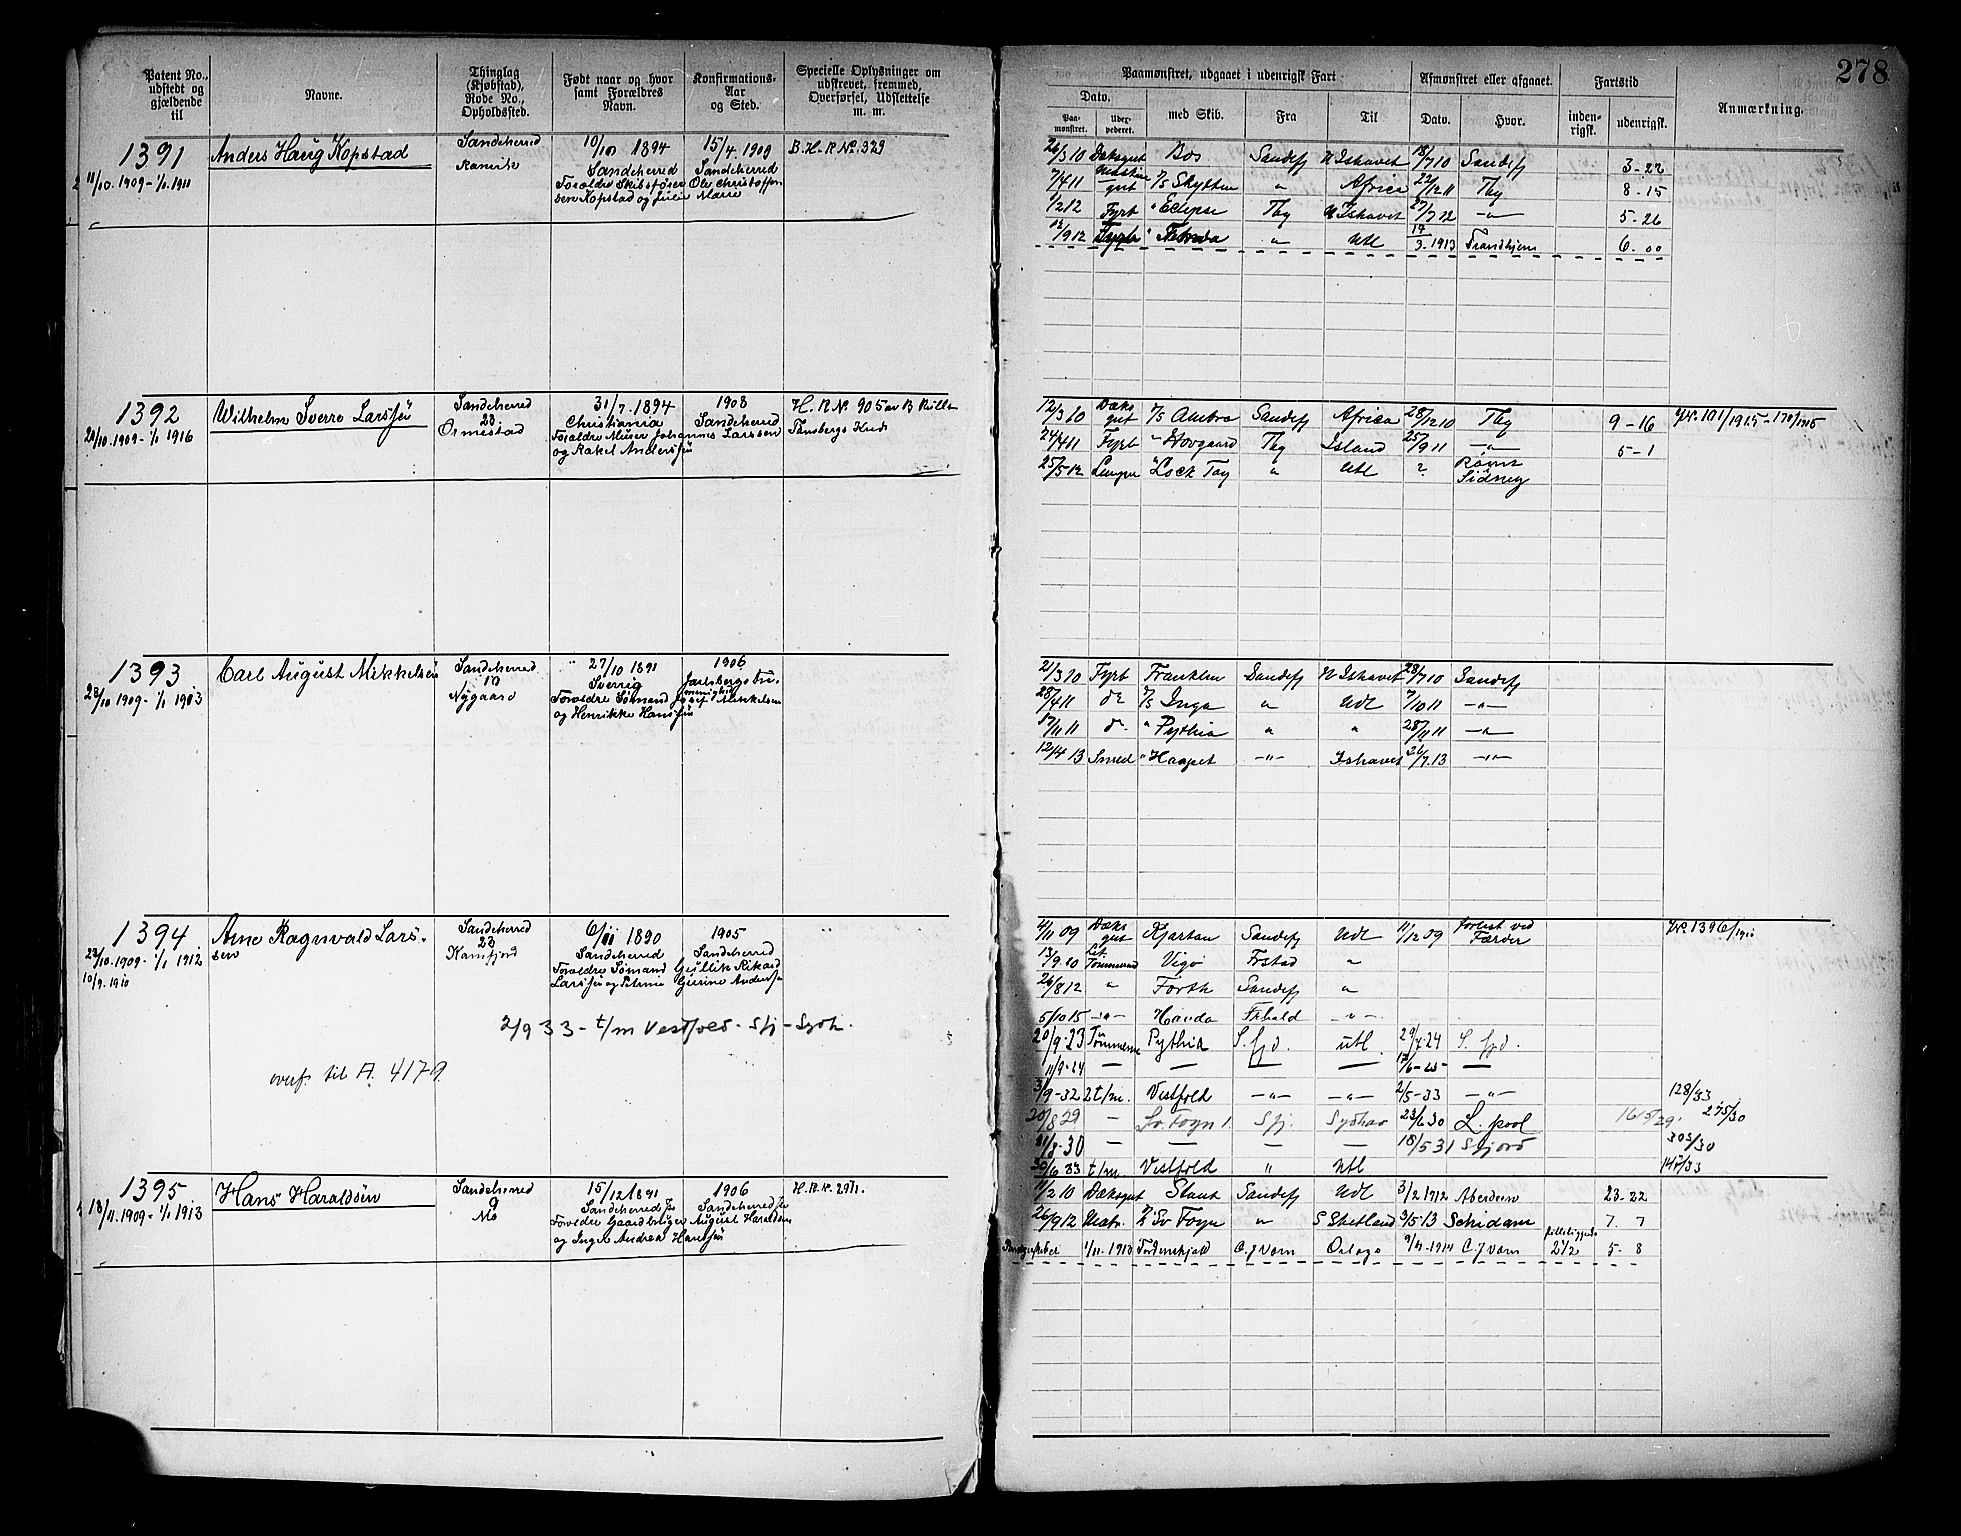 Patent No., udstedt og gjældende til
Navne.
Thinglag (Kjøbstad), Rode No., Opholdssted.
Født naar og hvor samt Forældres Navn.
Konfirmations-Aar og Sted.
Specielle Oplysninger om udstrevet, fremmed, Overførsel, Udslettelse m. m.
Paamønstret, udgaaet i udenrigsk Fart
Afmønstret eller afgaaet.
Fartstid
Anmærkning.
278
Dato.
med Skib.
Fra
Til
Dato.
Hvor.
inden-rigsk.
udenrigsk.
Paa-mønstret.
1391
11/10. 1909 - 1/1. 1911
Anders Haug Kopstad
Sandeherred
Ranerik
10/10 1894
Sandeherred
Forældre Skibsfører Ole Christoffer-
sen Kopstad og Julie Marie
15/4. 1909
Sandeherred
B.H-R No. 329
26/3 10 Dæksgut Bos Sandefj N Ishavet 18/7 10 Sandefj 3-22
7/4 11 gut T/S Skytten " Africa 22/12 11 Tbg 8-15
1/2 12 Fyrb " Eclipse Tbg N Ishavet 27/7 12 -"- 5-26
12/9 12 " " Utl 17/3. 1913 Trondhjem 6.00
1392
20/10. 1909 - 1/1 1916
Wilhelm Sverre Larssen
Sandeherred
23
Ormestad
31/7. 1894
Christiania
Forældre Murer Johannes Larssen
og Rakel Anderssen
1908
Sandeherred
H. R No. 905 av B Rullen
Tønsbergs Kreds
12/3 10 Dæks gut T/S Ambra Sandefj Africa 28/12 10 Tbg 9-16
24/4 11 Fyrb " Hovgaard Tbg Island 25/9 11 -"- 5-1
25/5 12 Lemper " Lock Tay " Utl ? Rømt
Sidney
Jr. 101/1915 - 170/1915
1393
22/10 1909 - 1/1 1913
Carl August Mikkelsen
Sandeherred
10
Nygaard
27/10 1891
Sverrig
Forældre Sømand Josef Mikkelsen
og Henrikke Hanssen
1906
Jarlsbergs fri-
menighed
21/3 10 Fyrb Franklin Sandefj N Ishavet 28/7 10 Sandefj
28/4 11 do T/S Inga " Udl 7/10 11 -"-
17/11 11 do " Pythia " " 28/11 11 -"-
12/4 13 Smed " Haapet -"- Ishavet 26/7. 13 -"-
1394
23/10. 1909 - 1/1 1912
10/9. 1910
Arne Ragnvald Lars-
sen
Sandeherred
23
Kamfjord
6/11 1890
Sandeherred
Forældre Sømand Gullik Rikard
Larssen og Petrine Gurine Anderssen
1905
Sandeherred
2/9 33 - t/m Vestfold - Sfj - Sydh.
overf. til A. 4179
4/11 09 Dæks gut Kjartan Sandefj Udl 11/12 09 Forlist ved
Færder
Jr. 1396/1910
13/9. 10 Tømmermand Vigo Frstad "
26/8 12 " Forth Sandefj "
5/10 15 -"- Handa Frhald -"-
20/9. 23 Tømmerm Pythia S. fjd. utl. 29/4. 24 S. fjd.
11/9-24 — — — — 17/6-25 —
31/9-32 2t/m. Vestfold -"- -"- 2/5-33 -"- 128/33
20/8 29 — Sv. Foyn 1. Sfj. Sydhav 23/6 30 L. pool 165/29 275/30
11/8-30 — — — — 18/5 31 Sfjord 303/30
30/6 33 t/m. Vestfold " Utl 147/33
1395
10/11. 1909 - 1/1 1913
Hans Haraldsen
Sandeherred
9
Mo
15/12 1891
Sandeherred
Forældre Gaardbruger August Haraldsen
og Ingel Andrea Hanssen
1906
Sandeherred
H.R.No. 2911.
11/2 10 Dæksgut Staut Sandefj Udl 3/2 1912 Aberdeen 23-22
26/9 12 Matr. Sv Foyn " S Shetland 3/5 13 Schidam 7. 7
1/11-1913 Fordenskjold C. J vorn Oslogo 9/4-1914 C. J vorn 2 1/2 5-8